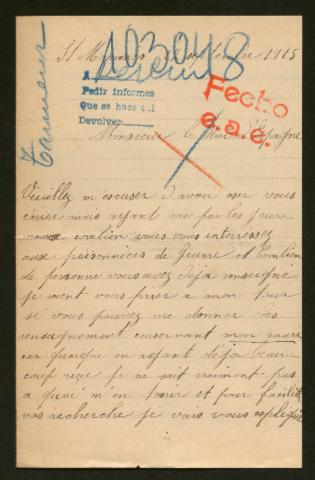 103048
1915
A
Pedir informes
Que se hace aqui
Devolver
Fecho
e.a.e.
Tanneur
Monsieur le Roi d'Espagne
Veuillez m'escuser d'avoir oser vous
écrire mais ayant vue par les journ
combien vous vous interessez
aux prisonniers de Guerre et Combien
de personne vous avez déja renseigné
je vient vous prier a mon tour
si vous pouvez me donner des
renseignement consernant mon mari
car quoique en ayant déja beau
coup reçu je ne sait vraiment pas
a quoi m'en tenir et pour facilité
vos recherche je vais vous espliqué